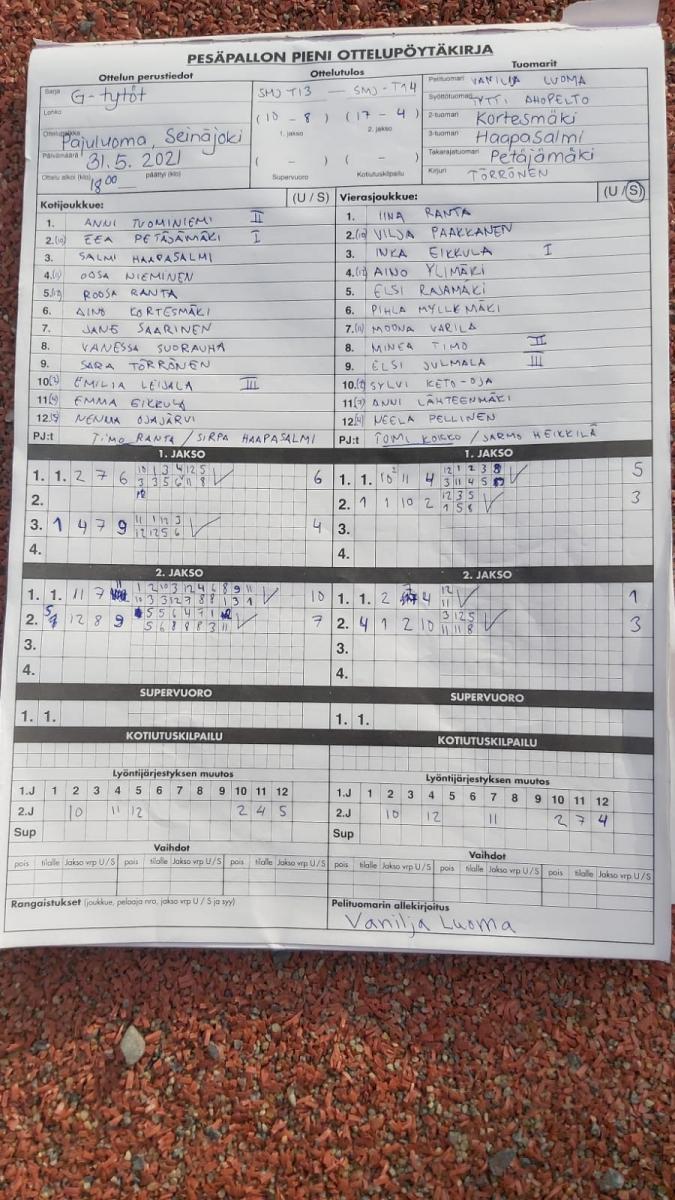 PESÄPALLON PIENI OTTELUPÖYTÄKIRJA
Ottelun perustiedot Ottelutulos Tuomarit
Sarja G-tytöt SMJ T13 — SMJ-T14 Pelituomari VANILJA LUOMA
Lohko (10 - 8) (17 - 4) Syöttötuomari TYTTI AHOPELTO
1. jakso 2. jakso 2-tuomari Kortesmäki
Ottelupaikka Pajuluoma, Seinäjoki 3-tuomari Haapasalmi
Päivämäärä 31.5. 2021 ( - ) ( - ) Takarajatuomari Petäjämäki
Ottelu alkoi (klo) 18 00 päättyi (klo) Supervuoro Kotiutuskilpailu Kirjuri TÖRRÖNEN
Kotijoukkue: (U / S) Vierasjoukkue: (U / S)
1. ANNI TUOMINIEMI II 1. IINA RANTA
2.(10) EEA PETÄJÄMÄKI I 2.(10) VILJA PAAKKANEN
3. SALMI HAAPASALMI 3. INKA EIKKULA I
4.(11) OOSA NIEMINEN 4.(12) AINO YLIMÄKI
5.(12) ROOSA RANTA 5. ELSI RAJAMÄKI
6. AINO KORTESMÄKI 6. PIHLA MYLLEMÄKI
7. JANE SAARINEN 7.(11) MOONA VARILA
8. VANESSA SUORAUHA 8. MINEA TIMO II
9. SARA TÖRRÖNEN 9. ELSI JULMALA III
10.(2) EMILIA LEIJALA III 10.(2) SYLVI KETO-OJA
11.(4) EMMA EIKKULA 11.(7) ANNI LÄHTEENMÄKI
12.(5) NENNA OJAJÄRVI 12.(4) NEELA PELLINEN
PJ:t TIMO RANTA / SIRPA HAAPASALMI PJ:t TOMI KOKKO / JARMO HEIKKILÄ
1. JAKSO 1. JAKSO
1. 1. 2 7 6 10 1 3 4 12 5 6 1. 1. 10 11 4 12 1 2 3 8 5
3 3 5 6 11 8 3 11 4 5
2. 2. 1 1 10 2 12 3 5 3
1 5 8
3. 1 4 7 9 11 1 12 3 4 3.
12 12 5 6
4. 4.
2. JAKSO 2. JAKSO
1. 1. 11 7 1 2 10 3 12 4 6 8 9 11 10 1. 1. 2 4 12 1
10 3 3 12 7 8 8 1 3 1 11
2. 12 8 9 5 5 6 4 7 1 7 2. 4 1 2 10 3 12 5 3
5 6 8 8 8 3 11 11 11 8
3. 3.
4. 4.
SUPERVUORO SUPERVUORO
1. 1. 1. 1.
KOTIUTUSKILPAILU KOTIUTUSKILPAILU
Lyöntijärjestyksen muutos Lyöntijärjestyksen muutos
1.J 1 2 3 4 5 6 7 8 9 10 11 12 1.J 1 2 3 4 5 6 7 8 9 10 11 12
2.J 10 11 12 2 4 5 2.J 10 12 11 2 7 4
Sup Sup
Vaihdot Vaihdot
pois tilalle Jakso vrp U/S pois tilalle Jakso vrp U/S pois tilalle Jakso vrp U/S pois tilalle Jakso vrp U/S pois tilalle Jakso vrp U/S pois tilalle Jakso vrp U/S
Rangaistukset (joukkue, pelaaja nro, jakso vrp U / S ja syy) Pelituomarin allekirjoitus
Vanilja Luoma